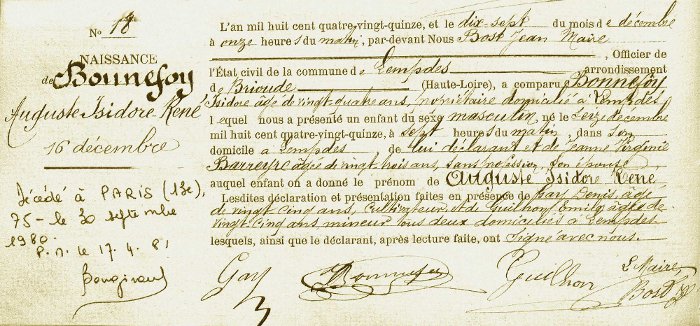 No 18
NAISSANCE
de Bonnefoy
Auguste Isidore René
16 décembre
Décédé à PARIS (13e)
75 - le 30 septembre
1980.
P. M. le 17. 4. 81
L'an mil huit cent quatre-vingt-quinze, et le dix-sept du mois de décembre
à onze heures du matin, par-devant Nous Bost Jean Maire
, Officier de
l'État civil de la commune de Lempdes arrondissement
de Brioude (Haute-Loire), a comparu Bonnefoy
Isidore âgé de vingt quatre ans, propriétaire domicilié à Lempdes
lequel nous a présenté un enfant du sexe masculin, né le seize décembre
mil huit cent quatre-vingt-quinze, à sept heures du matin, dans son
domicile à Lempdes, de lui déclarant et de Jeanne Virginie
Barreyre âgée de vingt trois ans, sans profession, son épouse
auquel enfant on a donné le prénom de Auguste Isidore René
Lesdites déclaration et présentation faites en présence de Gay Denis âgé
de vingt cinq ans, cultivateur et de Guilhon Emily âgé de
vingt cinq ans mineur tous deux domiciliés à Lempdes
lesquels, ainsi que le déclarant, après lecture faite, ont signé avec nous.
Gay Bonnefoy Guilhon Le Maire,
Bost